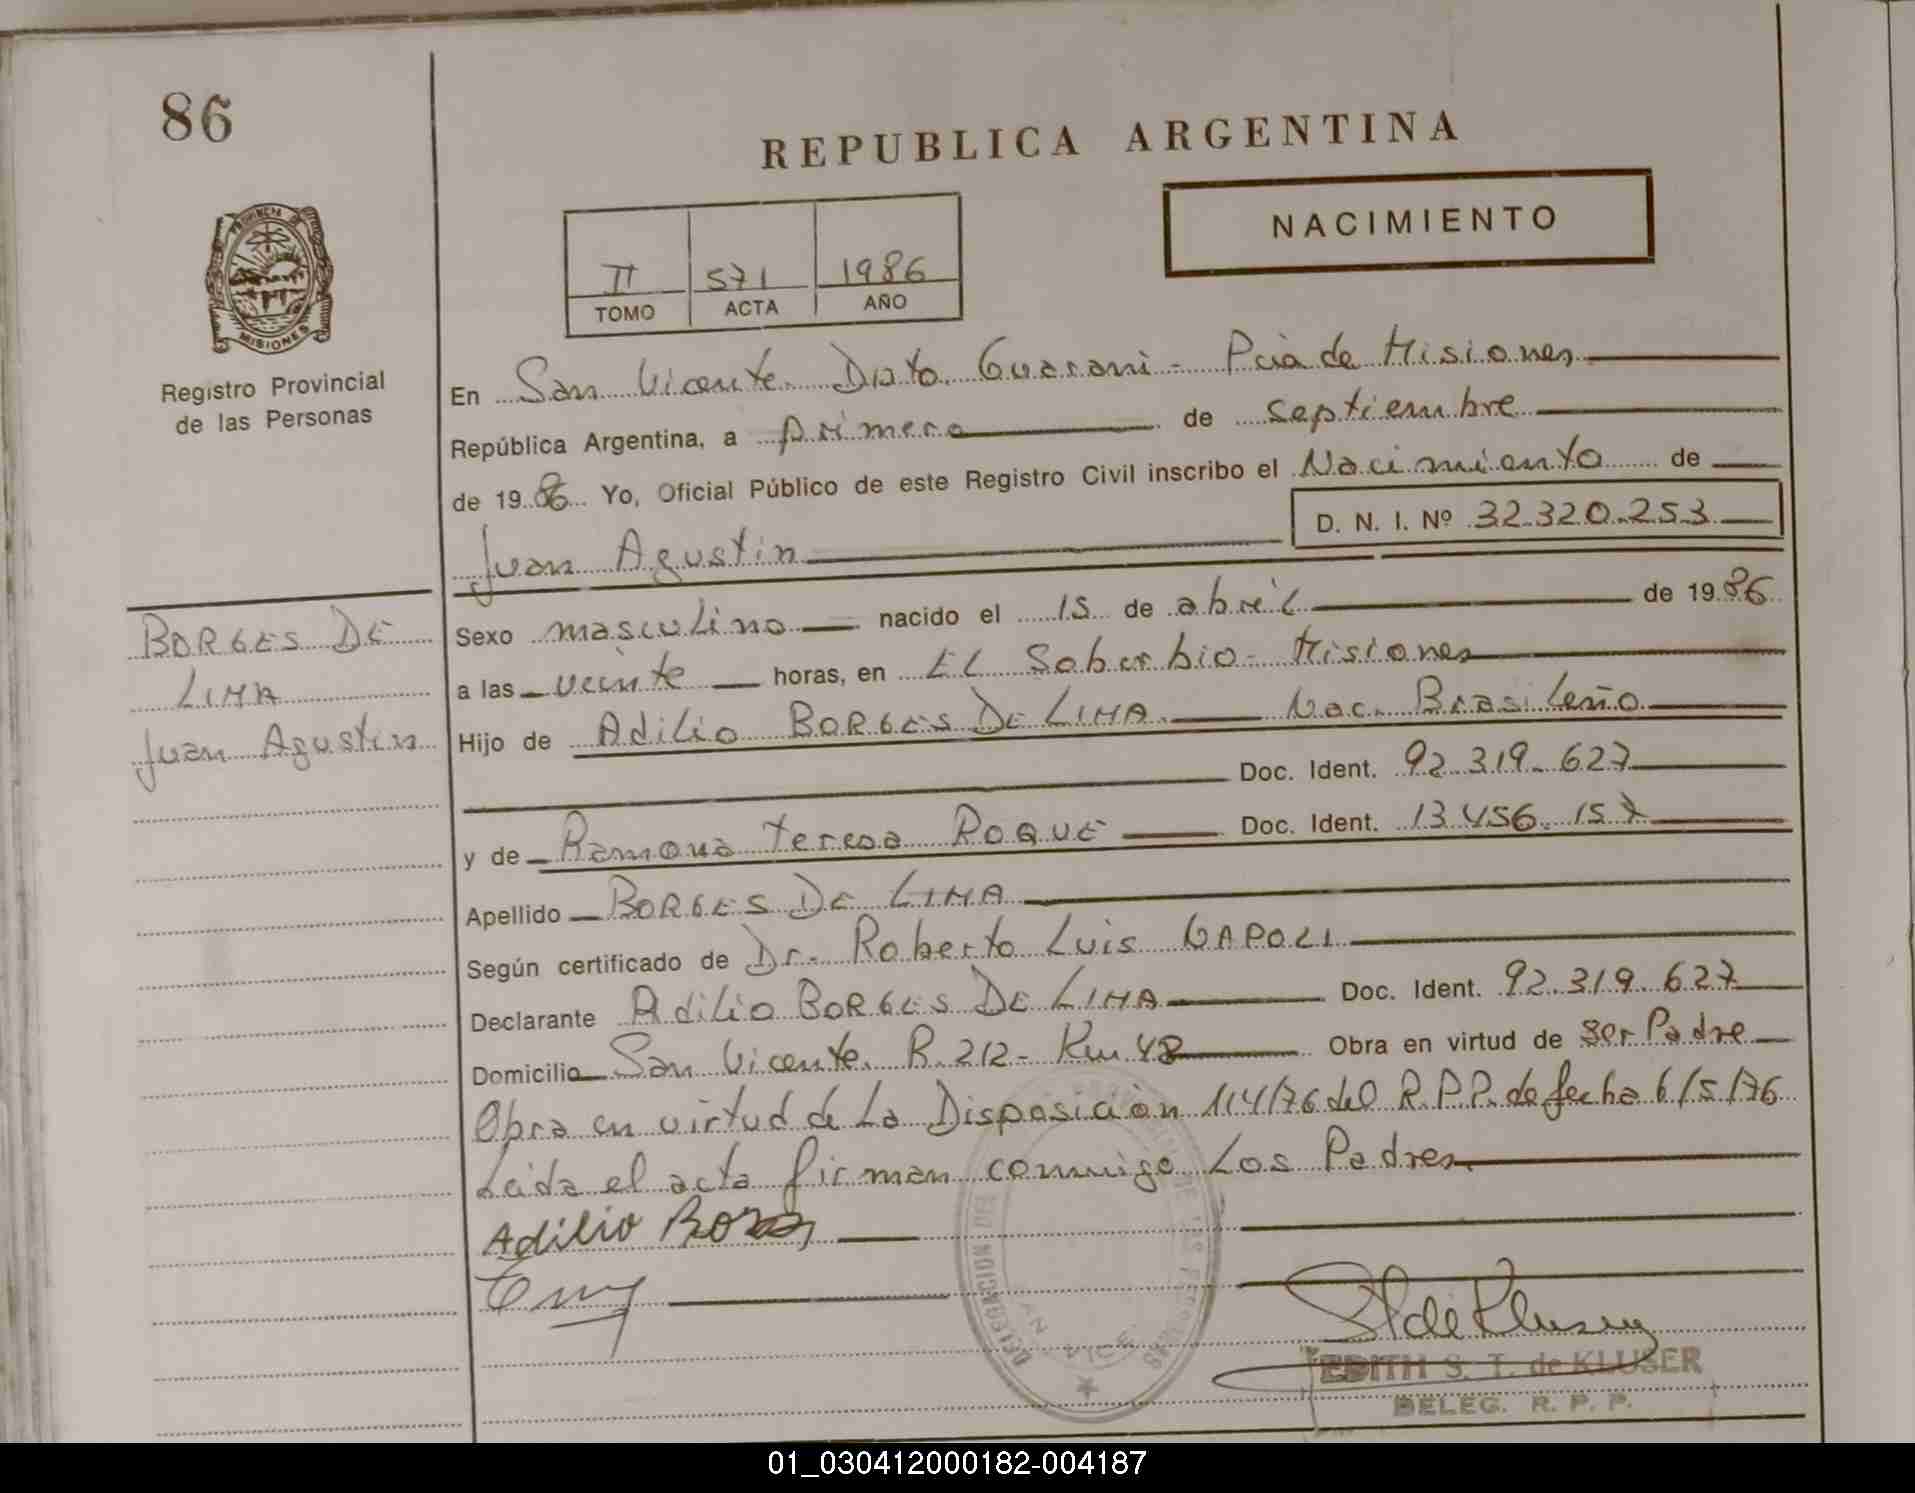 86
REPUBLICA ARGENTINA
NACIMIENTO
II 571 1986
TOMO ACTA AÑO
PROVINCIA DE
MISIONES
Registro Provincial
de las Personas
BORGES DE
LIMA
Juan Agustin
En San Vicente Dpto. Guarani - Pcia de Misiones
República Argentina, a primero de septiembre
de 1986 Yo, Oficial Público de este Registro Civil inscribo el Nacimiento de
Juan Agustin D. N. I. Nº 32.320.253
Sexo masculino nacido el 15 de abril de 1986
a las veinte horas, en El Soberbio - Misiones
Hijo de Adilio BORGES DE LIMA Nac. Brasileño
Doc. Ident. 92.319.627
y de Ramona Teresa ROQUE Doc. Ident. 13.456.157
Apellido BORGES DE LIMA
Según certificado de Dr. Roberto Luis
Declarante Adilio BORGES DE LIMA Doc. Ident. 92.319.627
Domicilio San Vicente. R. 212 - Km 48 Obra en virtud de ser Padre
Obra en virtud de La Disposición 114/76 del R.P.P. de fecha 6/5/76
Leida el acta firman conmigo Los Padres
Adilio
EDITH S. T. de KLUSER
DELEG. R. P. P.
01_030412000182-004187